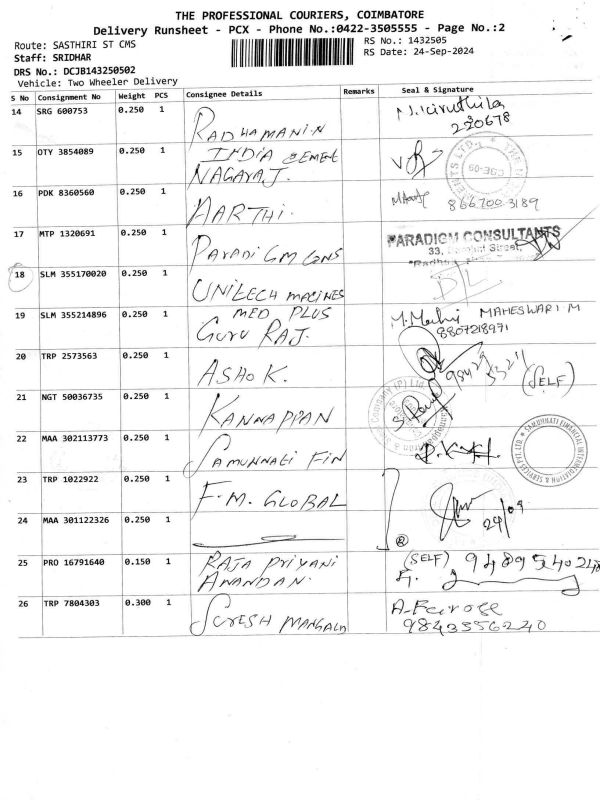 THE PROFESSIONAL COURIERS, COIMBATORE
Delivery Runsheet - PCX - Phone No.:0422-3505555 - Page No.:2
Route: SASTHIRI ST CMS
RS No.: 1432505
Staff: SRIDHAR
RS Date: 24-Sep-2024
DRS No.: DCJB143250502
Vehicle: Two Wheeler Delivery
S No Consignment No Weight PCS Consignee Details Remarks Seal & Signature
14 SRG 600753 0.250 1 RADHAMANI.N
220678
15 OTY 3854089 0.250 1 INDIA CEMENT
NAGARAJ.
16 PDK 8360560 0.250 1 AARTHI. 866700 3189
17 MTP 1320691 0.250 1 PARADIGM CONS PARADIGM CONSULTANTS
33,
18 SLM 355170020 0.250 1 UNILECH MACINES
19 SLM 355214896 0.250 1 MED PLUS MAHESWARI M
GURU RAJ. 8807218971
20 TRP 2573563 0.250 1 ASHOK. (SELF)
21 NGT 50036735 0.250 1 KANNAPPAN
22 MAA 302113773 0.250 1 SAMUNNATI FIN
23 TRP 1022922 0.250 1 F.M. GLOBAL
24/09
24 MAA 301122326 0.250 1
25 PRO 16791640 0.150 1 RAJA PRIYANI (SELF) 9489540248
ANANDAN.
26 TRP 7804303 0.300 1 SURESH MANGALM A.Feirose
9843556240